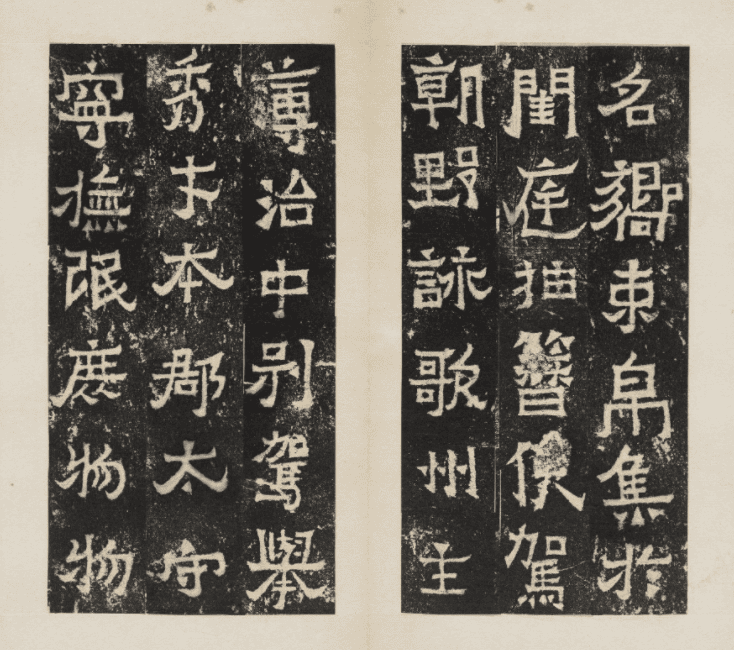 名嚮束帛集於
閨庭抽簪俟駕
朝野詠歌州主
薄治中別駕舉
秀才本郡太守
寧撫氓庶物物